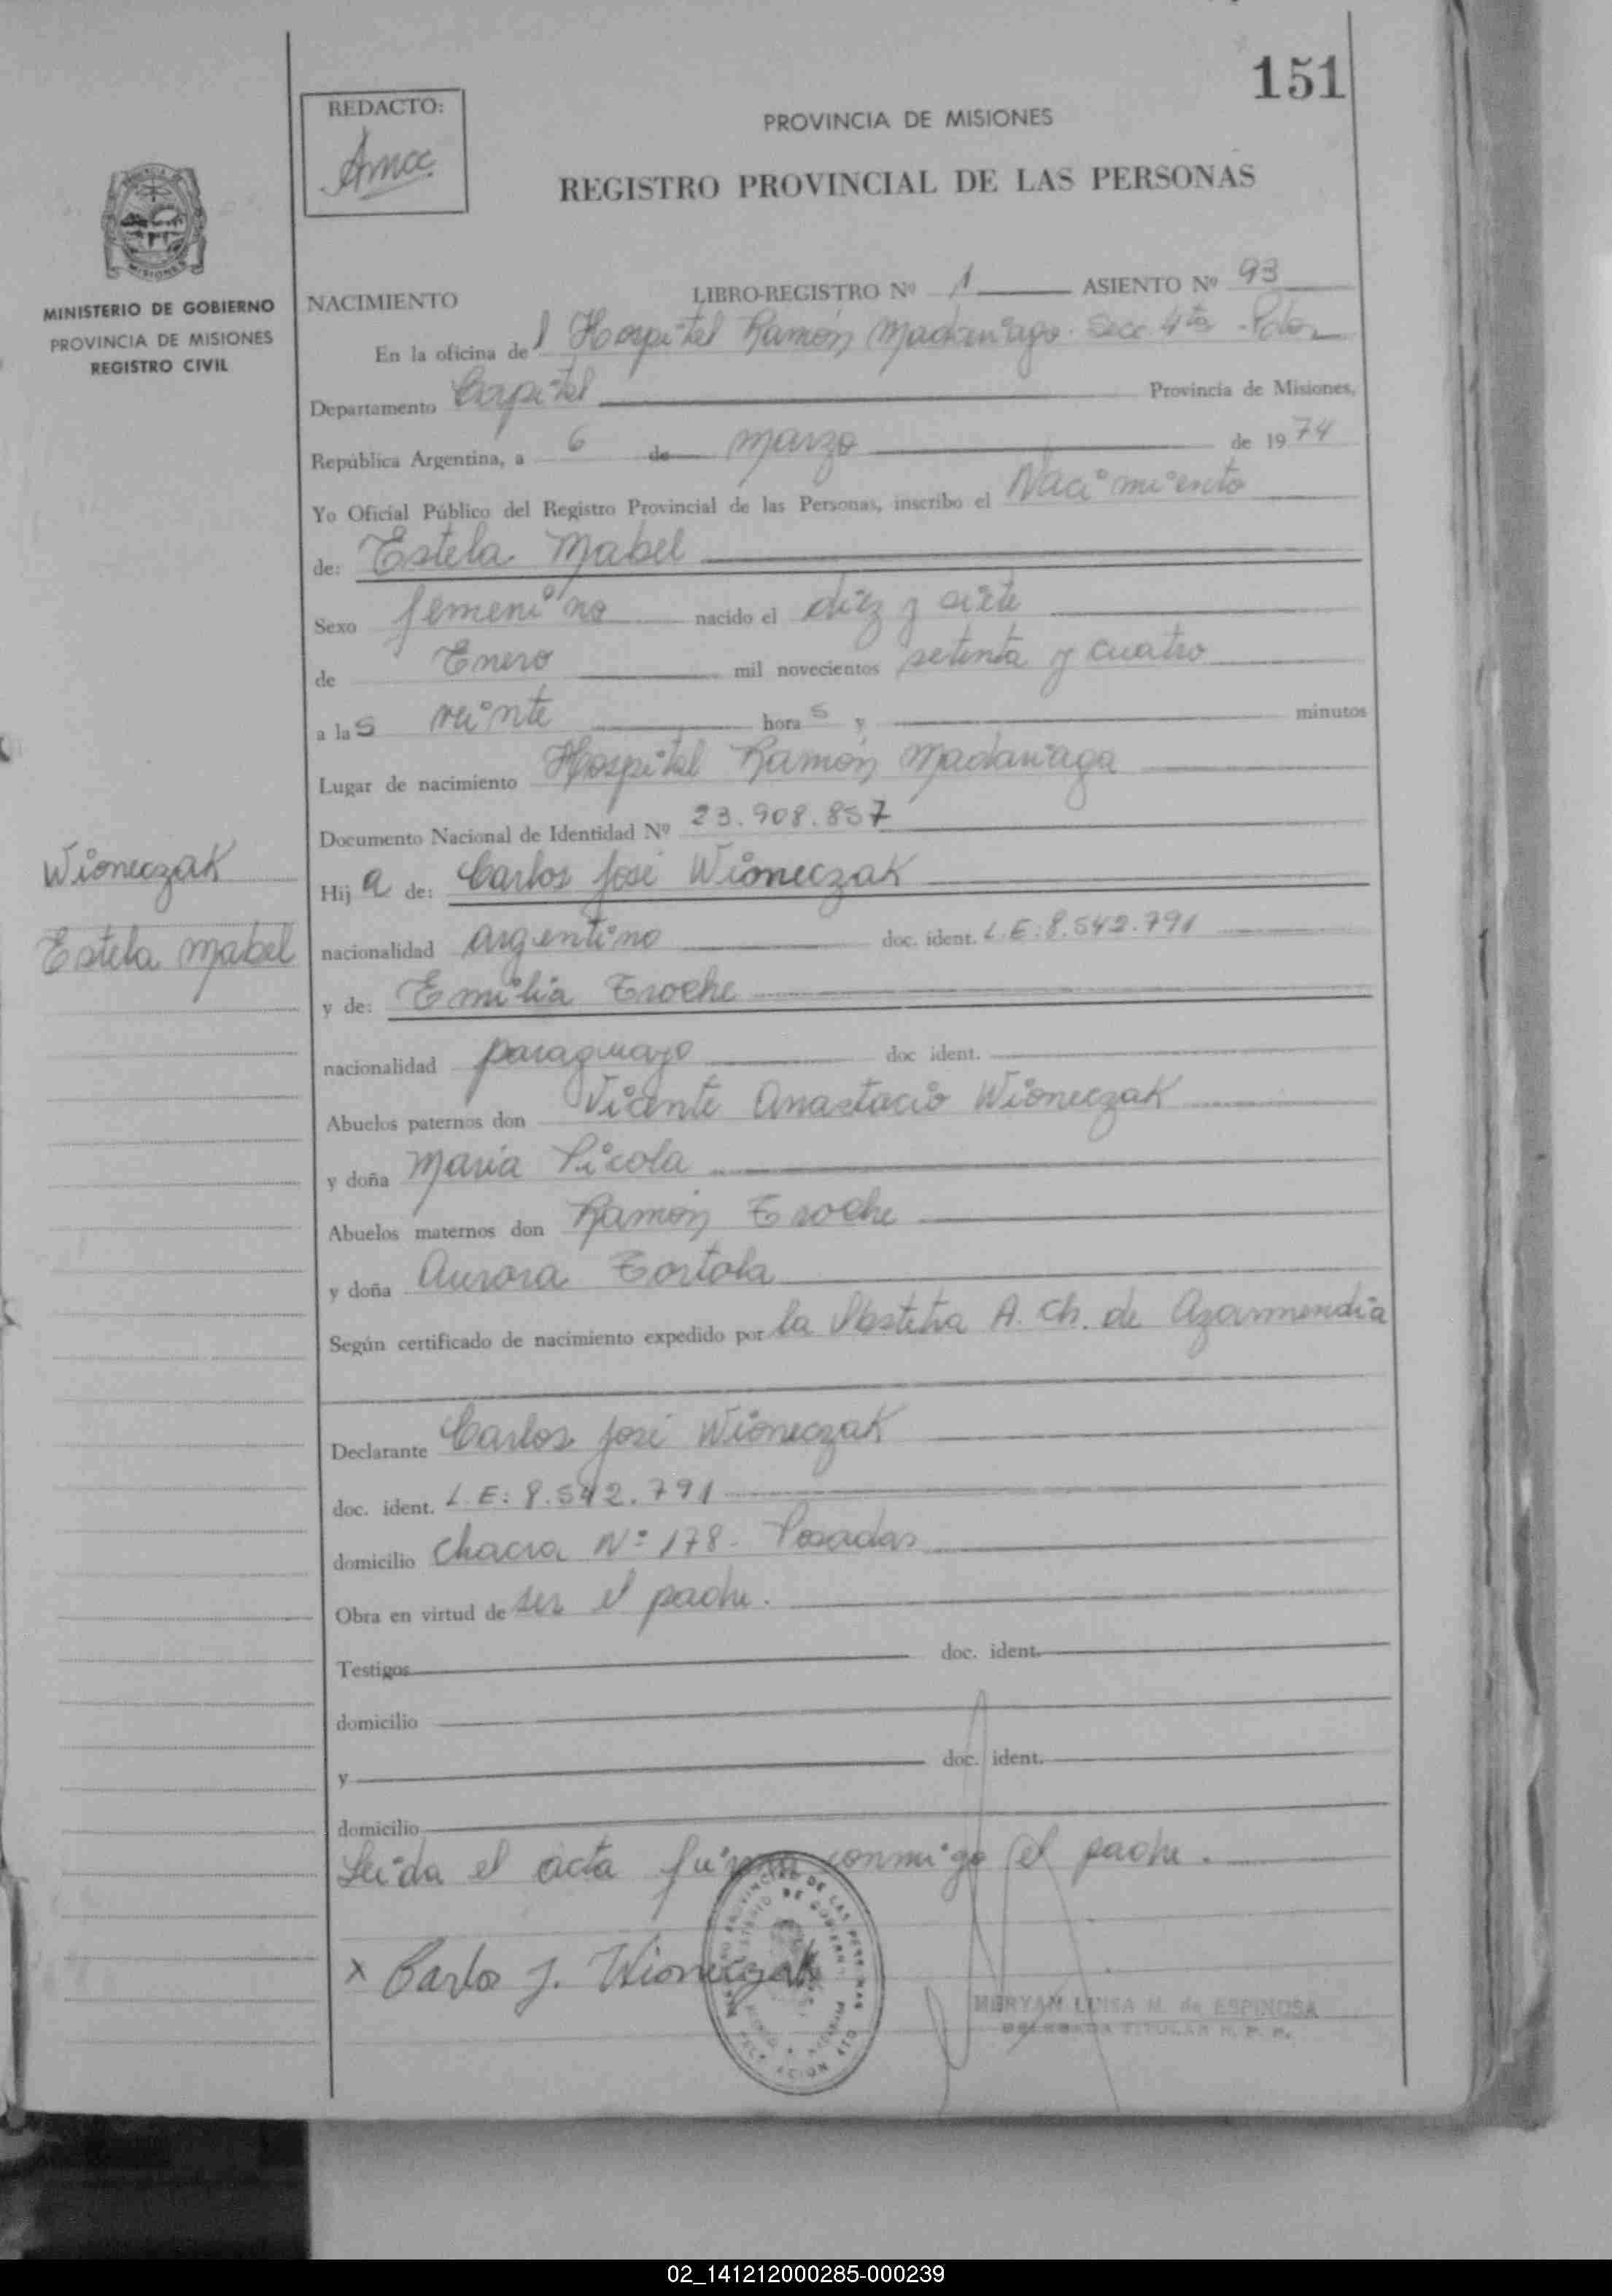 151
REDACTO:
PROVINCIA DE MISIONES
REGISTRO PROVINCIAL DE LAS PERSONAS
MISIONES
MINISTERIO DE GOBIERNO
PROVINCIA DE MISIONES
REGISTRO CIVIL
NACIMIENTO LIBRO-REGISTRO Nº 1 ASIENTO Nº 93
En la oficina del Hospital Ramón Madariaga. Secc 4ta
Departamento Capital Provincia de Misiones,
República Argentina, a 6 de marzo de 1974
Yo Oficial Público del Registro Provincial de las Personas, inscribo el Nacimiento
de: Estela Mabel
Sexo femenino nacido el diez y siete
de Enero mil novecientos setenta y cuatro
a las veinte horas y minutos
Lugar de nacimiento Hospital Ramón Madariaga
Documento Nacional de Identidad Nº 23.908.857
Wioneczak
Estela Mabel
Hija de: Carlos José Wioneczak
nacionalidad argentino doc. ident. L.E: 8.542.791
y de: Emilia Troche
nacionalidad paraguayo doc ident.
Abuelos paternos don Vicente Anastacio Wioneczak
y doña María Picola
Abuelos maternos don Ramón Troche
y doña Aurora Tortola
Según certificado de nacimiento expedido por la Obstetra A. Ch. de Azarmendia
Declarante Carlos José Wioneczak
doc. ident. L.E: 8.542.791
domicilio Chacra Nº 178. Posadas
Obra en virtud de ser el padre.
Testigos doc. ident.
domicilio
y doc. ident.
domicilio
Leida el acta firma conmigo el padre.
x Carlos J. Wioneczak
MERYAN LUISA M. de ESPINOSA
DELEGADA TITULAR R. P. P.
02_141212000285-000239